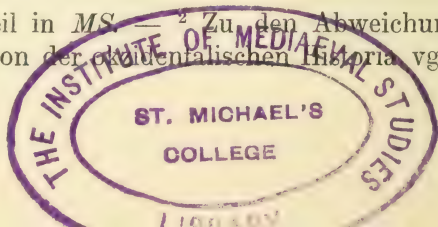 eil in MS. — ² Zu den Abweichun
on der okzidentalischen Historia vg
THE INSTITUTE OF MEDIAEVAL STUDIES
ST. MICHAEL'S
COLLEGE
LIBRARY